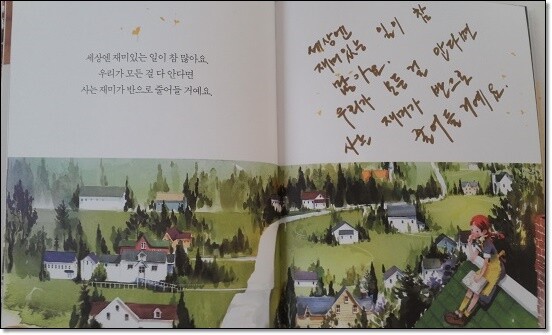 세상엔 재미있는 일이 참 많아요.
우리가 모든 걸 다 안다면
사는 재미가 반으로 줄어들 거예요.
세상엔
재미있는 일이 참
많아요.
우리가 모든 걸 안다면
사는 재미가 반으로
줄어들 거예요.